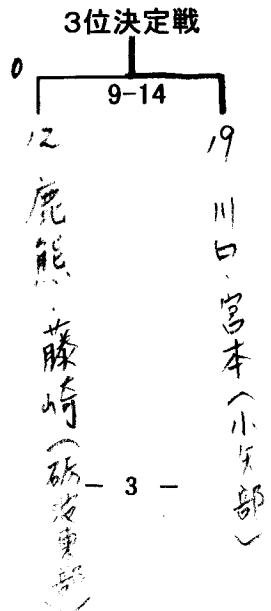 3位決定戦
0
9-14
12 鹿熊・藤崎(砺波東部)
19 川口・宮本(小矢部)
- 3 -